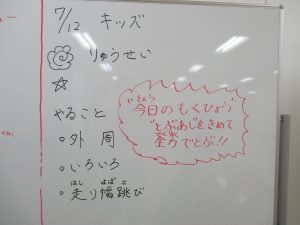 7/12 キッズ
りゅうせい
やること
外周
いろいろ
はし はば と
走り幅跳び
きょう
"今日のもくひょう"
"とぶあし"をきめて
全力でとぶ!!